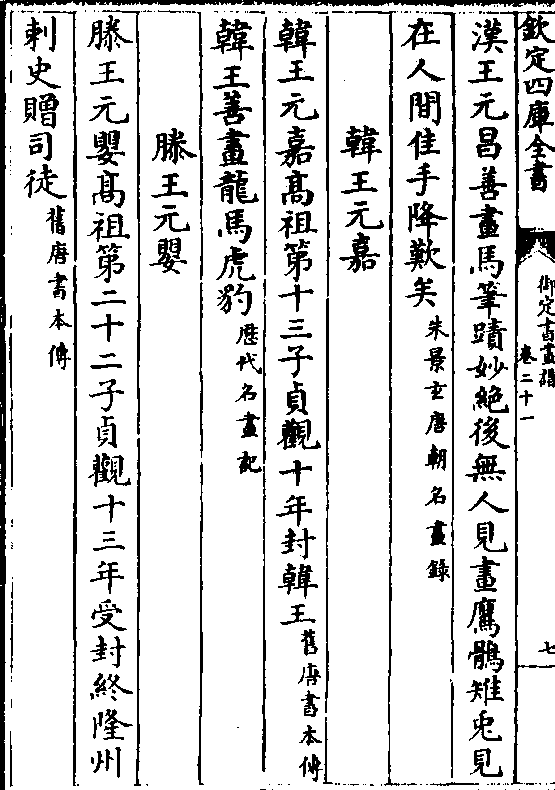 欽定四庫全書
御定書畫譜
卷二十一
七
漢王元昌善畫馬筆蹟妙絶後無人見畫鷹鶻雉兎見
在人間佳手降歎矣朱景玄唐朝名畫錄
韓王元嘉
韓王元嘉髙祖第十三子貞觀十年封韓王舊唐書本傳
韓王善畫龍馬虎豹歴代名畫記
滕王元嬰
滕王元嬰髙祖第二十二子貞觀十三年受封終隆州
刺史贈司徒舊唐書本傳